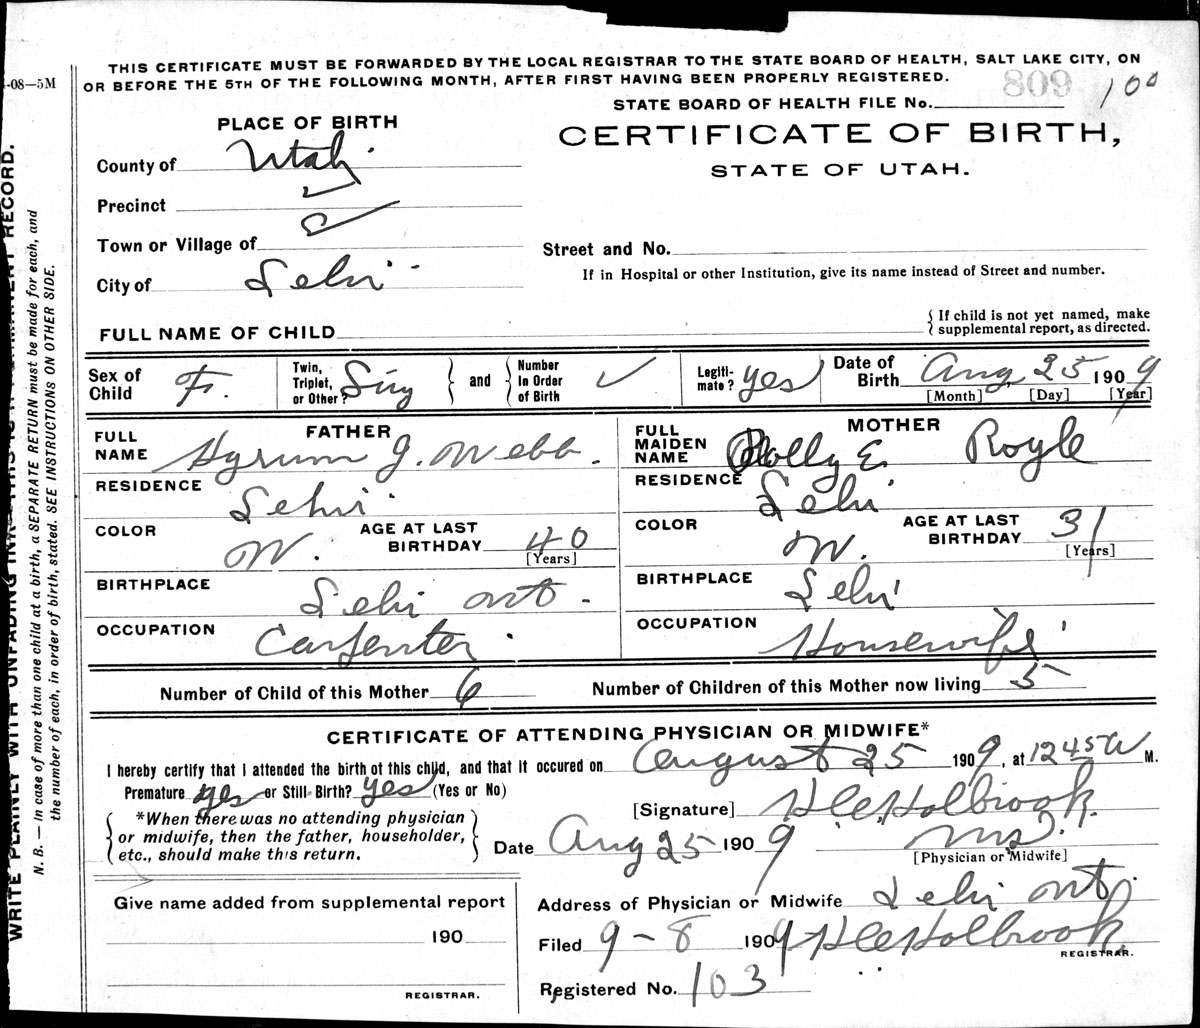 THIS CERTIFICATE MUST BE FORWARDED BY THE LOCAL REGISTRAR TO THE STATE BOARD OF HEALTH, SALT LAKE CITY, ON
OR BEFORE THE 5TH OF THE FOLLOWING MONTH, AFTER FIRST HAVING BEEN PROPERLY REGISTERED.
-08—5M
809
100
STATE BOARD OF HEALTH FILE No.
PLACE OF BIRTH
CERTIFICATE OF BIRTH,
STATE OF UTAH.
County of Utah
Precinct
Town or Village of
Street and No.
If in Hospital or other Institution, give its name instead of Street and number.
City of Lehi
FULL NAME OF CHILD
{ If child is not yet named, make
supplemental report, as directed.
Sex of Child F.
Twin, Triplet, or Other? Sing
and
Number In Order of Birth ✓
Legiti-mate? yes
Date of Birth Aug 25 1909
[Month] [Day] [Year]
FATHER
FULL NAME Hyrum J. Webb.
RESIDENCE Lehi
COLOR W. AGE AT LAST BIRTHDAY 40
[Years]
BIRTHPLACE Lehi Ut.
OCCUPATION Carpenter.
MOTHER
FULL MAIDEN NAME Polly E. Royle
RESIDENCE Lehi
COLOR W. AGE AT LAST BIRTHDAY 31
[Years]
BIRTHPLACE Lehi
OCCUPATION Housewife
Number of Child of this Mother 6 Number of Children of this Mother now living 5
CERTIFICATE OF ATTENDING PHYSICIAN OR MIDWIFE*
I hereby certify that I attended the birth of this child, and that it occured on August 25 1909, at 1245 A M.
Premature yes or Still Birth? yes (Yes or No)
[Signature] Holbrook.
{ *When there was no attending physician
or midwife, then the father, householder,
etc., should make this return. }
Date Aug 25 1909 MD.
[Physician or Midwife]
Give name added from supplemental report
190
REGISTRAR.
Address of Physician or Midwife Lehi Ut.
Filed 9-8 1909 Holbrook
REGISTRAR.
Registered No. 103
WRITE PLAINLY WITH UNFADING INK—THIS IS A PERMANENT RECORD.
N. B. — In case of more than one child at a birth, a SEPARATE RETURN must be made for each, and
the number of each, in order of birth, stated. SEE INSTRUCTIONS ON OTHER SIDE.